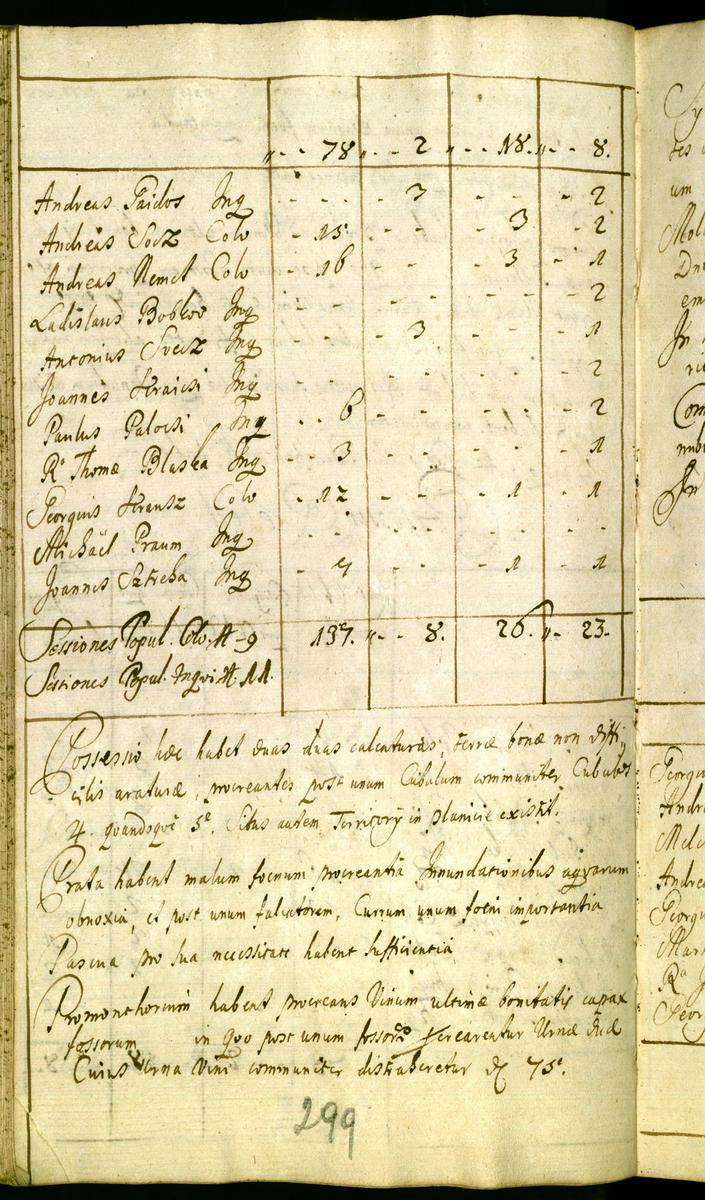 „ - - 78 „ - - 2 „ - - 18. „ - - 8.
Andreas Paidos Inq - - - - - - 3 - - - - 2
Andreas Socz Colo - 15 - - - - 3 - 2
Andreas Nemet Colo - 16 - - - 3 - 1
Ladislaus Bobkov Inq - - - - - - - - - 2
Antonius Svecz Inq - - - - 3 - - - - 1
Joannes Kraicsi Inq - - - - - - - - - 2
Paulus Palocsi Inq - - 6 - - - - - - 2
Ra Thomæ Blaska Inq - - 3 - - - - - 1
Georgius Krausz Colo - 12 - - - 1 - 1
Michaël Praum Inq - - - - - - - - -
Joannes Sztreha Inq - 7 - - - 1 - 1
Sessiones Popul. Colo. N. 9 137. „ - - 8. 26. „ - 23.
Sessiones Popul. Inqui. N. 11.
Possessio hæc habet duas calcaturas, terræ bonæ non diffi-
cilis araturæ, procreantes post unum Cubulum communiter Cubulos
4. quandoque 5e. Situs autem Territorÿ in planicie existit.
Prata habent malum foenum procreantia Innundationibus aquarum
obnoxia, et post unum falcatorem, Currum unum foeni importantia
Pascua pro sua necessitate habent sufficientia
Promonthorium habent procreans Vinum ultimæ bonitatis capax
fossorum in quo post unum fossorem Urnæ duæ
Cuius Urna Vini communiter distraheretur 75.
299